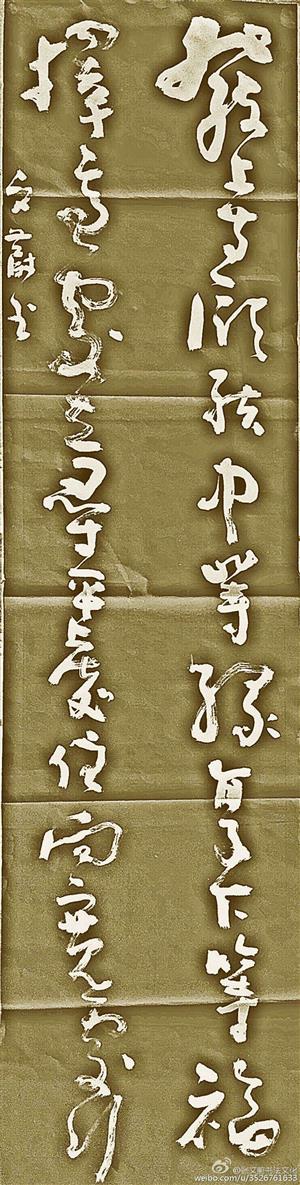 發上等願結中等緣享下等福
擇高處立尋平處住向寬處行
文蔚书
书法文化
weibo.com/u/3526761633